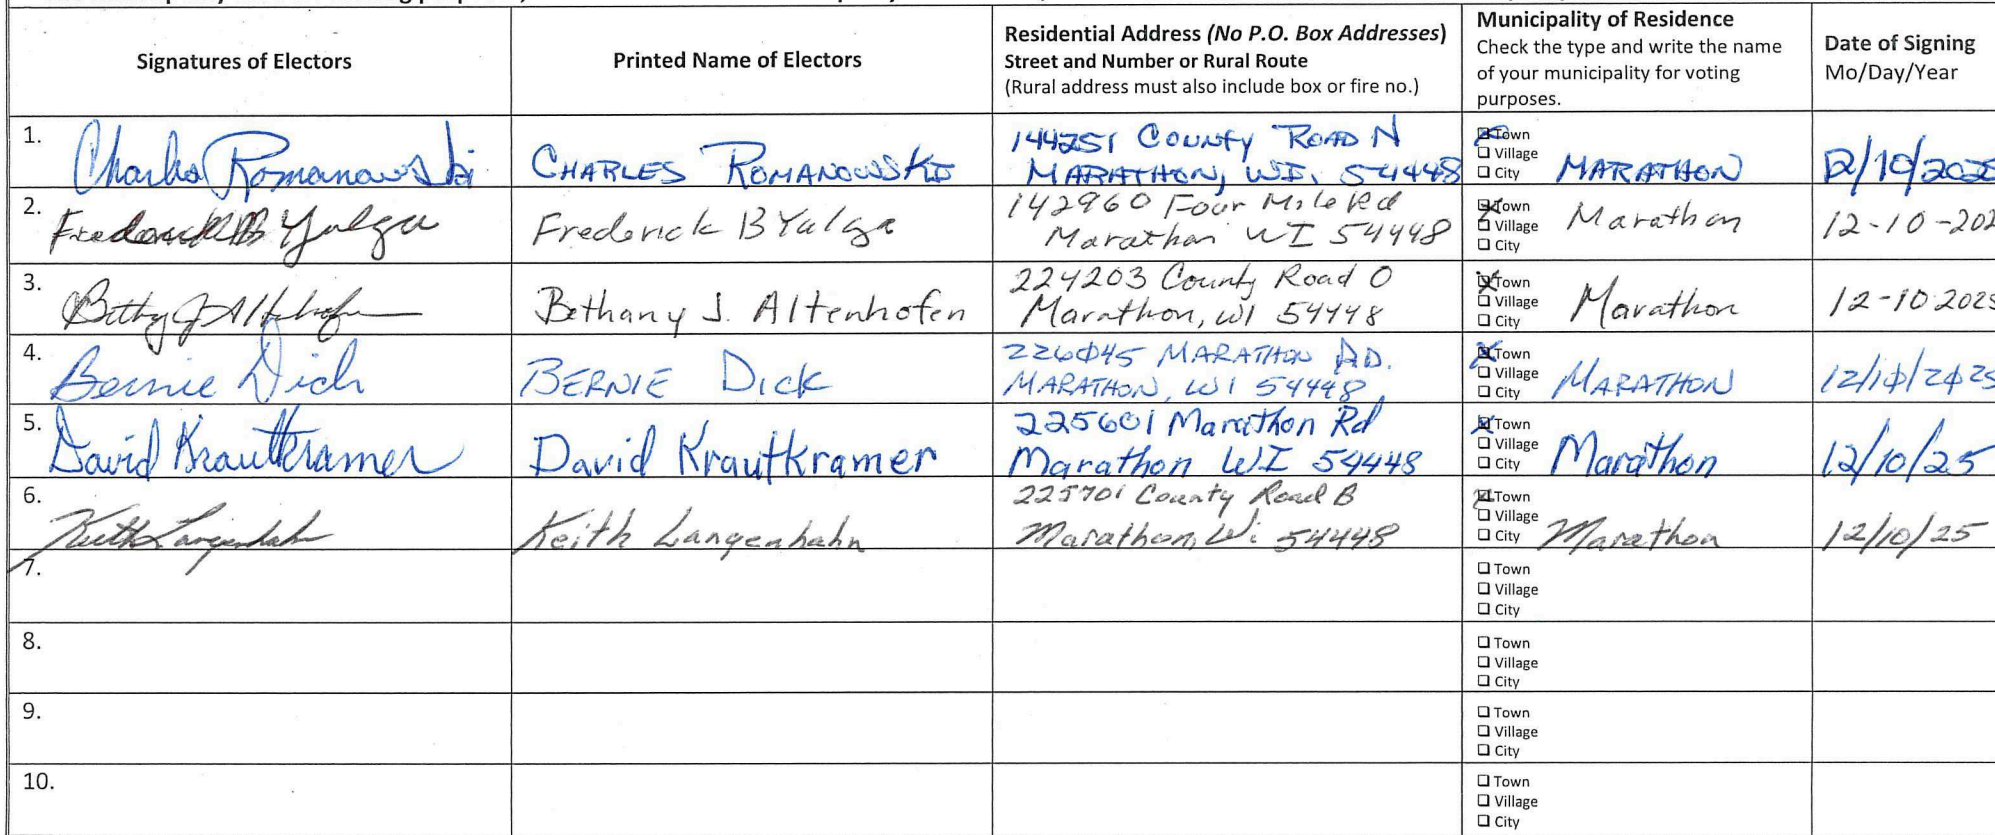 Signatures of Electors
Printed Name of Electors
Residential Address (No P.O. Box Addresses)
Street and Number or Rural Route
(Rural address must also include box or fire no.)
Municipality of Residence
Check the type and write the name
of your municipality for voting
purposes.
Date of Signing
Mo/Day/Year
1. Charles Romanowski CHARLES ROMANOWSKI
144251 COUNTY ROAD N
MARATHON, WI, 54448
Town
Village
City
MARATHON
12/10/2025
2. Frederick B Yalga Frederick B Yalga
142960 Four Mile Rd
Marathon WI 54448
Town
Village
City
Marathon
12-10-202
3. Bethany J Altenhofen Bethany J. Altenhofen
224203 County Road O
Marathon, WI 54448
Town
Village
City
Marathon
12-10 2025
4. Bernie Dick BERNIE DICK
226045 MARATHON RD.
MARATHON, WI 54448
Town
Village
City
MARATHON
12/10/2025
5. David Krautkramer David Krautkramer
225601 Marathon Rd
Marathon WI 54448
Town
Village
City
Marathon
12/10/25
6. Keith Langenhahn Keith Langenhahn
225701 County Road B
Marathon, Wi 54448
Town
Village
City
Marathon
12/10/25
7.
Town
Village
City
8.
Town
Village
City
9.
Town
Village
City
10.
Town
Village
City